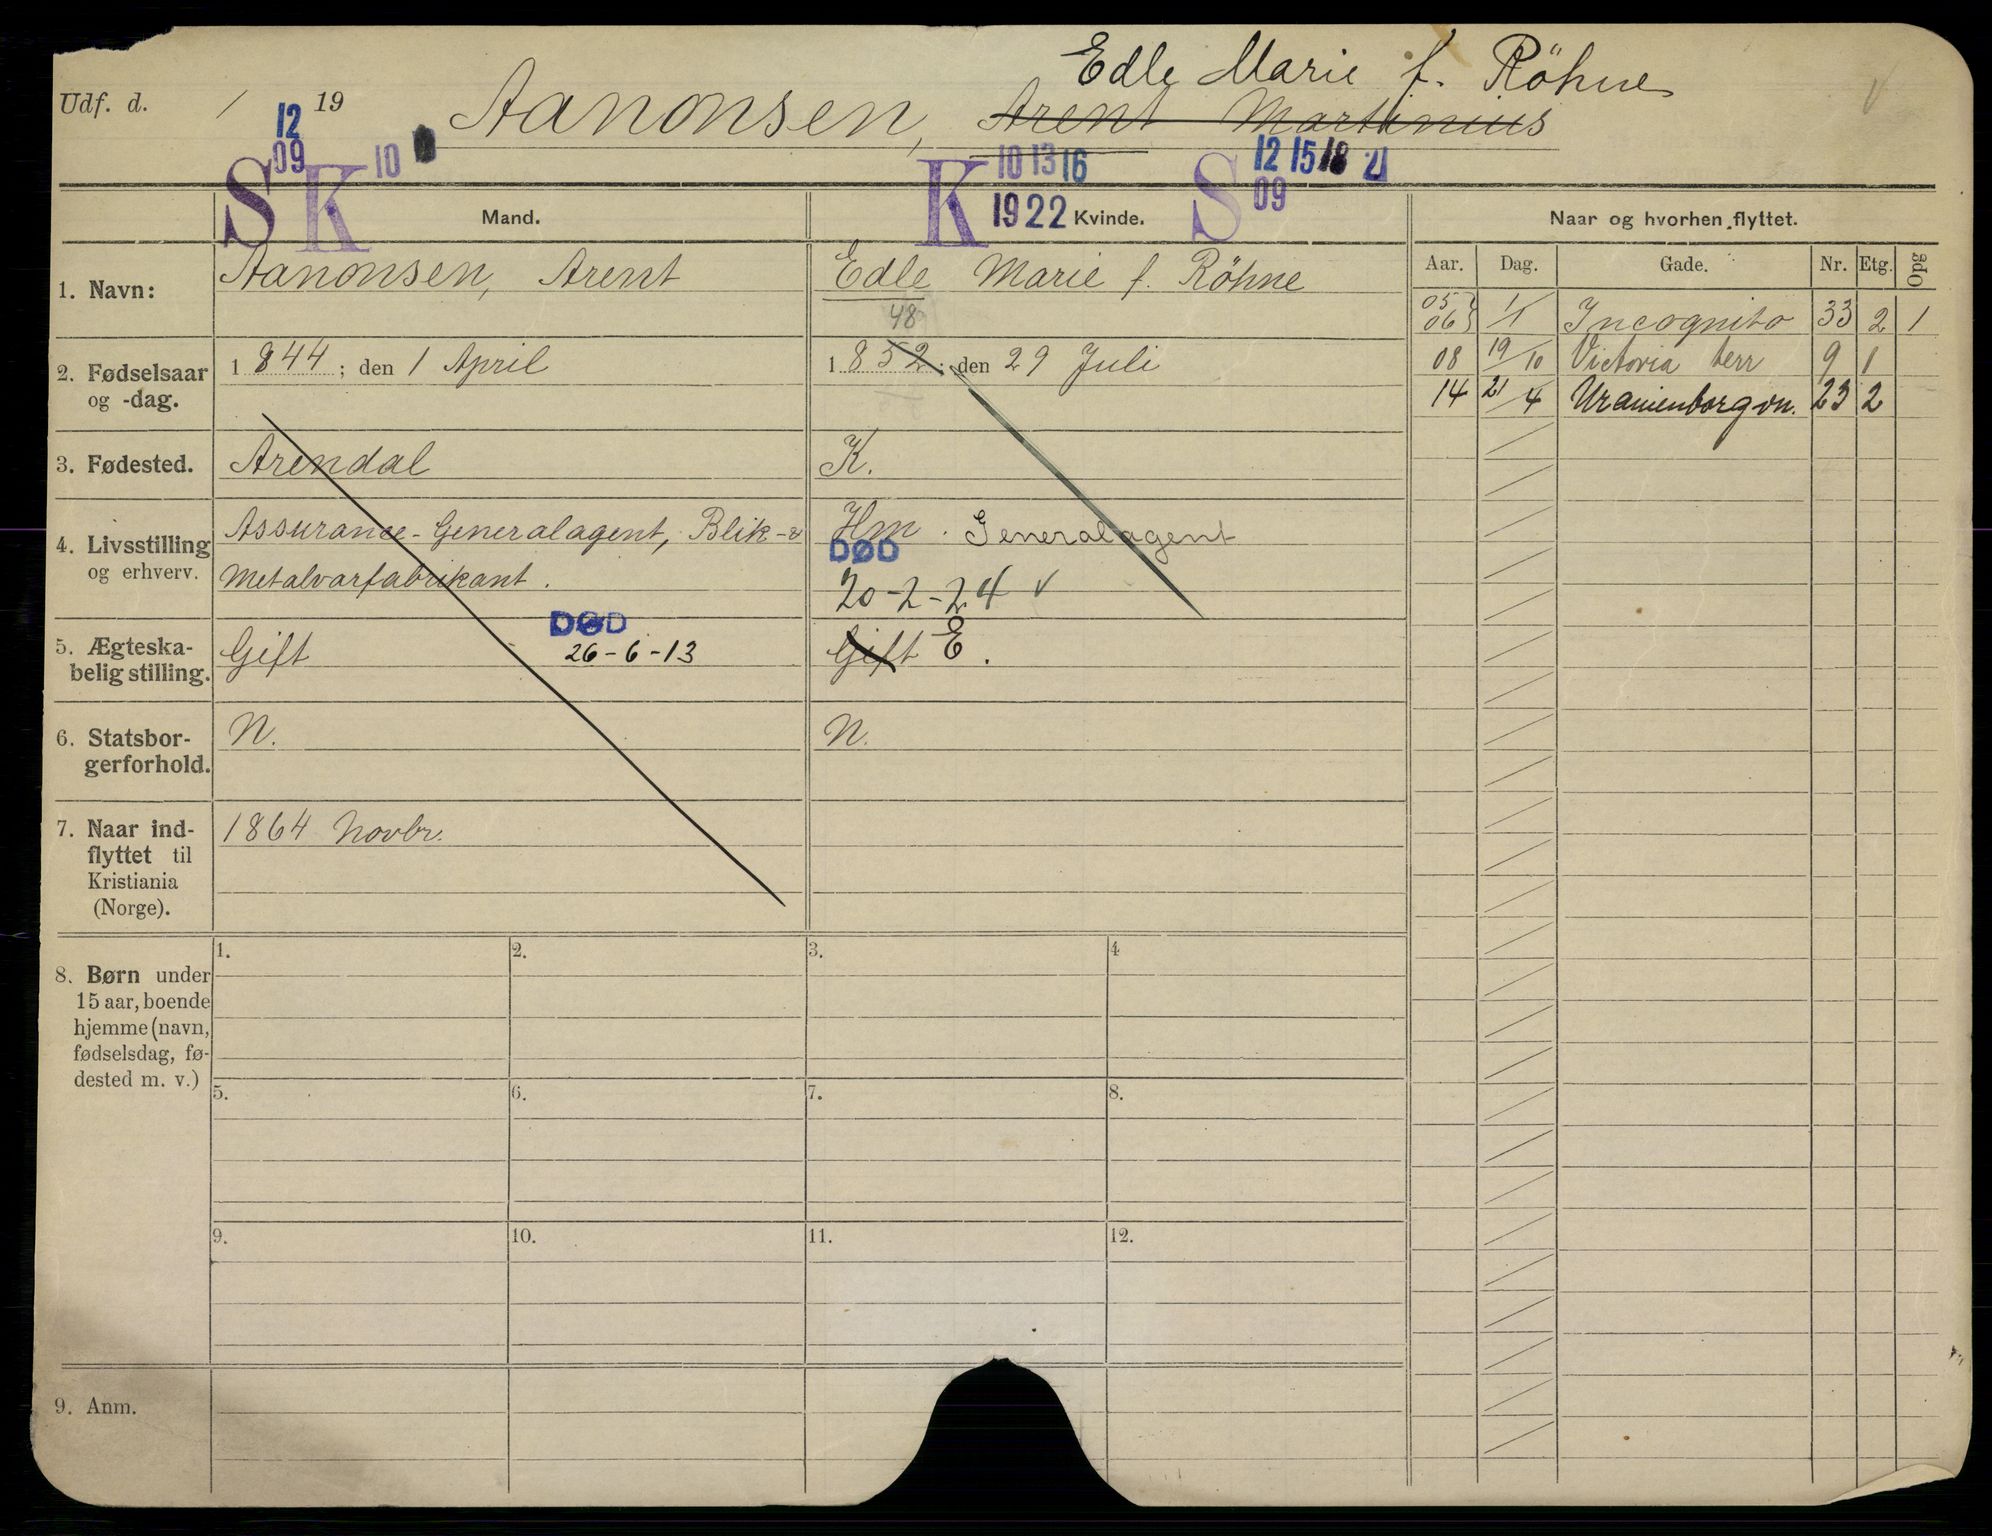 Edle Marie f. Röhne
Udf. d. / 19 Aanonsen, Arent Martinius
12
09 10 10 13 16 12 15 18 21
S K K 1922 S 09
Mand. Kvinde. Naar og hvorhen flyttet.
Aar. Dag. Gade. Nr. Etg. Opg
1. Navn: Aanonsen, Arent Edle Marie f. Röhne
05 06 1/1 Incognito 33 2 1
48
2. Fødselsaar og -dag. 1844; den 1 April 1852; den 29 Juli
08 19/10 Victoria terr 9 1
14 21/4 Uranienborgvn. 23 2
3. Fødested. Arendal K.
4. Livsstilling og erhverv. Assurance-Generalagent, Blik-&
Metalvarfabrikant.
Hm. Generalagent
DØD
20-2-24 v
5. Ægteska-
belig stilling. Gift
DØD
26-6-13
Gift E.
6. Statsbor-
gerforhold. N. N.
7. Naar ind-
flyttet til
Kristiania
(Norge).
1864 Novbr.
8. Børn under
15 aar, boende
hjemme (navn,
fødselsdag, fø-
dested m. v.)
1. 2. 3. 4
5. 6. 7. 8.
9. 10. 11. 12.
9. Anm.